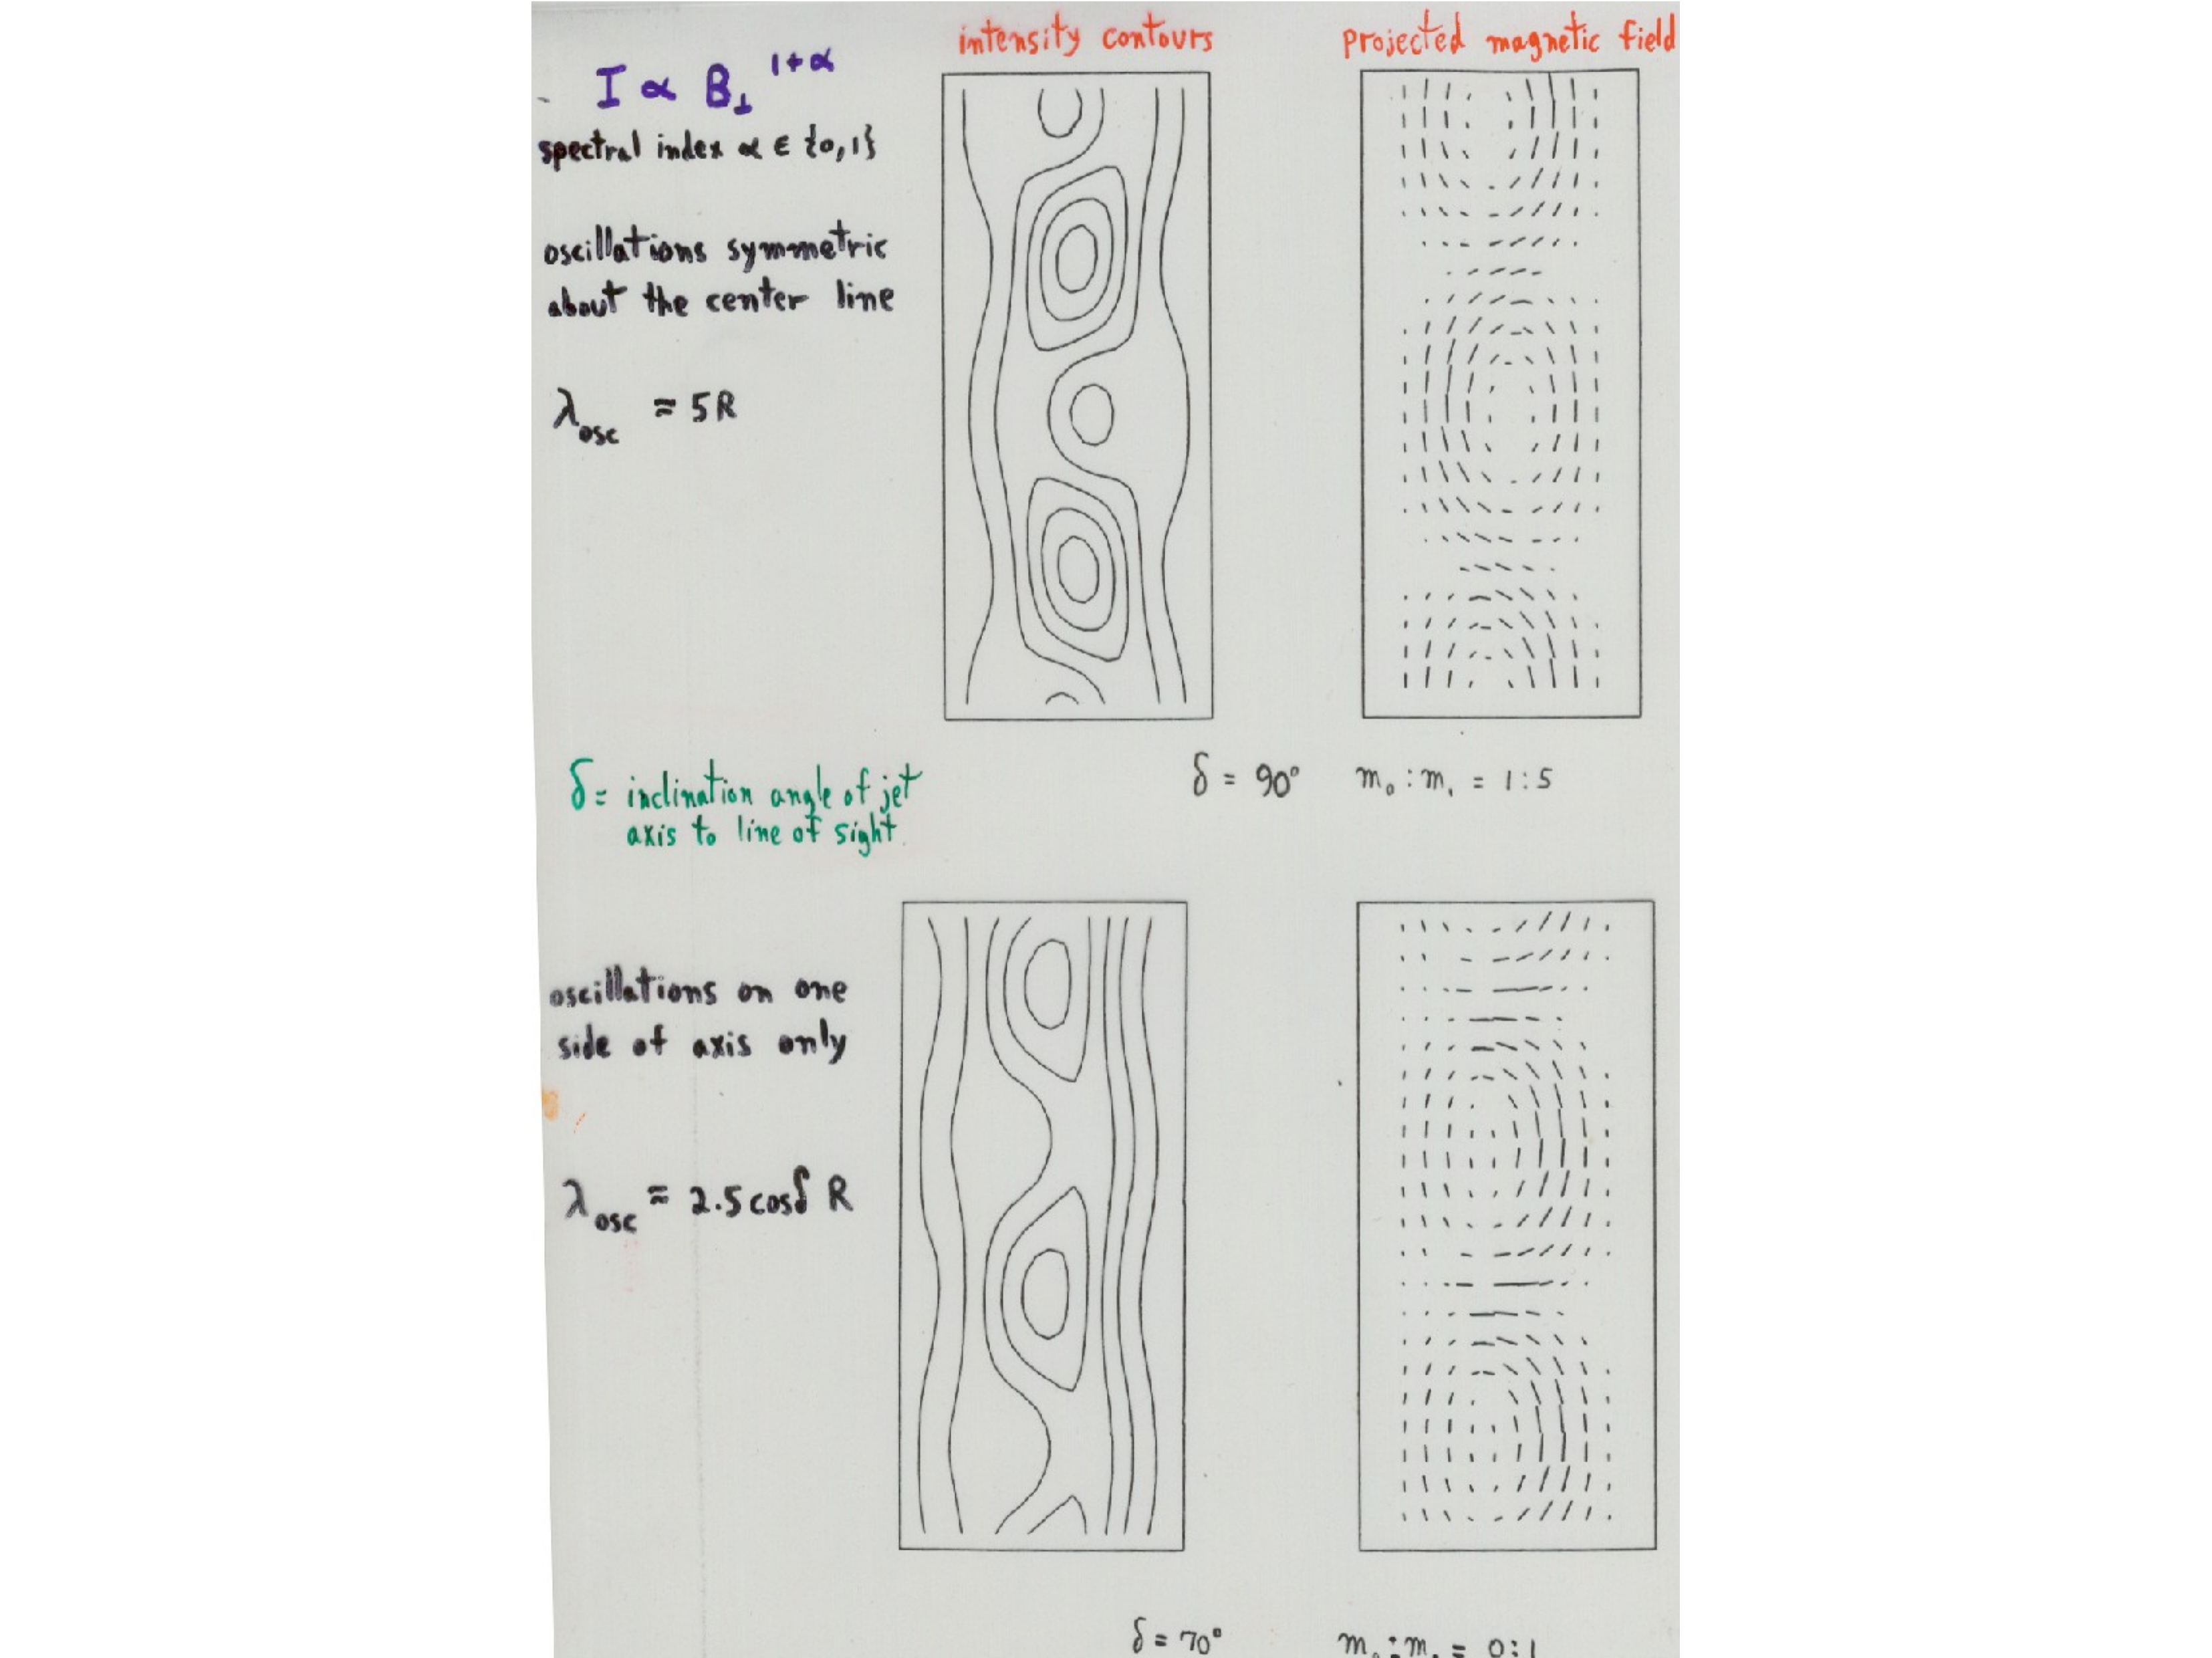 intensity contours
projected magnetic field
I ∝ B⊥ ^{1+α}
spectral index α ∈ {0,1}
oscillations symmetric
about the center line
λ_osc ≈ 5R
δ = 90°
m₀ : m₁ = 1:5
δ = inclination angle of jet
axis to line of sight.
oscillations on one
side of axis only
λ_osc ≈ 2.5 cosδ R
δ = 70°
m₀ : m₁ = 0:1